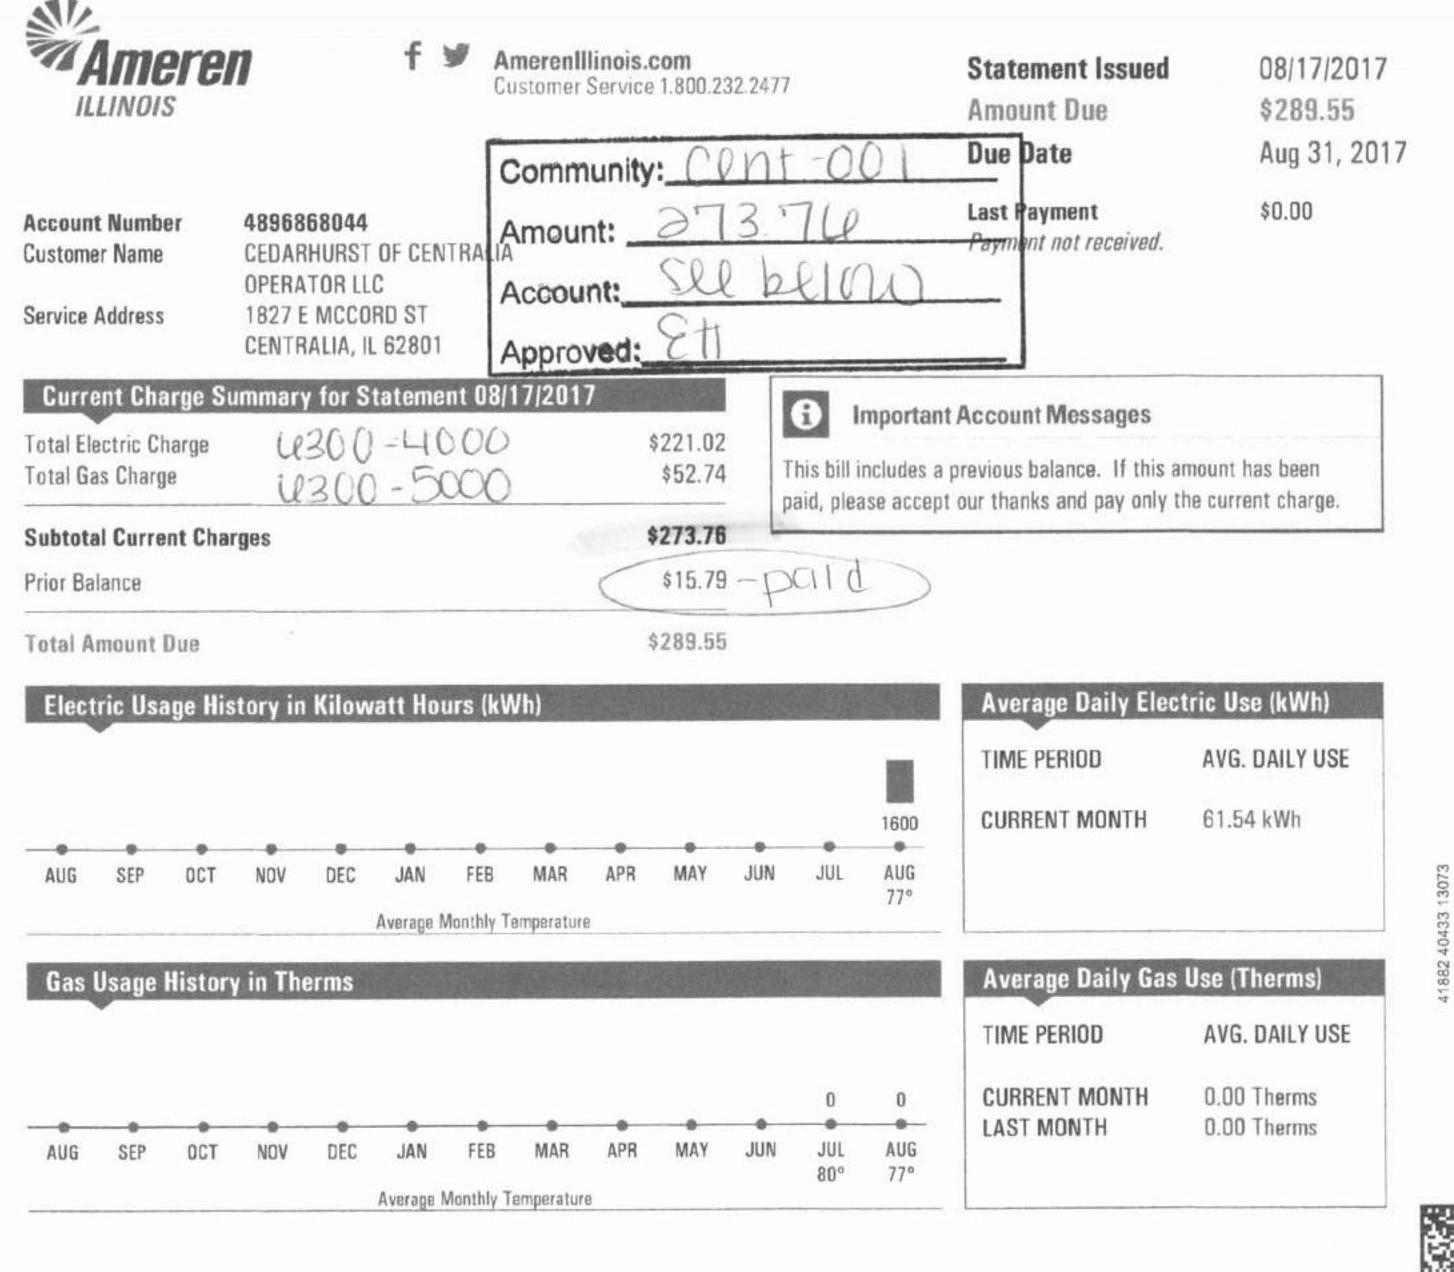 Ameren
ILLINOIS
AmerenIllinois.com
Customer Service 1.800.232.2477
Statement Issued 08/17/2017
Amount Due $289.55
Due Date Aug 31, 2017
Last Payment $0.00
Payment not received.
Community: Cent-001
Amount: 273.76
Account: See below
Approved: EH
Account Number 4896868044
Customer Name CEDARHURST OF CENTRALIA
OPERATOR LLC
Service Address 1827 E MCCORD ST
CENTRALIA, IL 62801
Current Charge Summary for Statement 08/17/2017
Total Electric Charge 6300-4000 $221.02
Total Gas Charge 6300-5000 $52.74
Subtotal Current Charges $273.76
Prior Balance $15.79 - paid
Total Amount Due $289.55
Important Account Messages
This bill includes a previous balance. If this amount has been
paid, please accept our thanks and pay only the current charge.
Electric Usage History in Kilowatt Hours (kWh)
1600
AUG SEP OCT NOV DEC JAN FEB MAR APR MAY JUN JUL AUG
77°
Average Monthly Temperature
Average Daily Electric Use (kWh)
TIME PERIOD AVG. DAILY USE
CURRENT MONTH 61.54 kWh
Gas Usage History in Therms
0 0
AUG SEP OCT NOV DEC JAN FEB MAR APR MAY JUN JUL AUG
80° 77°
Average Monthly Temperature
Average Daily Gas Use (Therms)
TIME PERIOD AVG. DAILY USE
CURRENT MONTH 0.00 Therms
LAST MONTH 0.00 Therms
41882 40433 13073